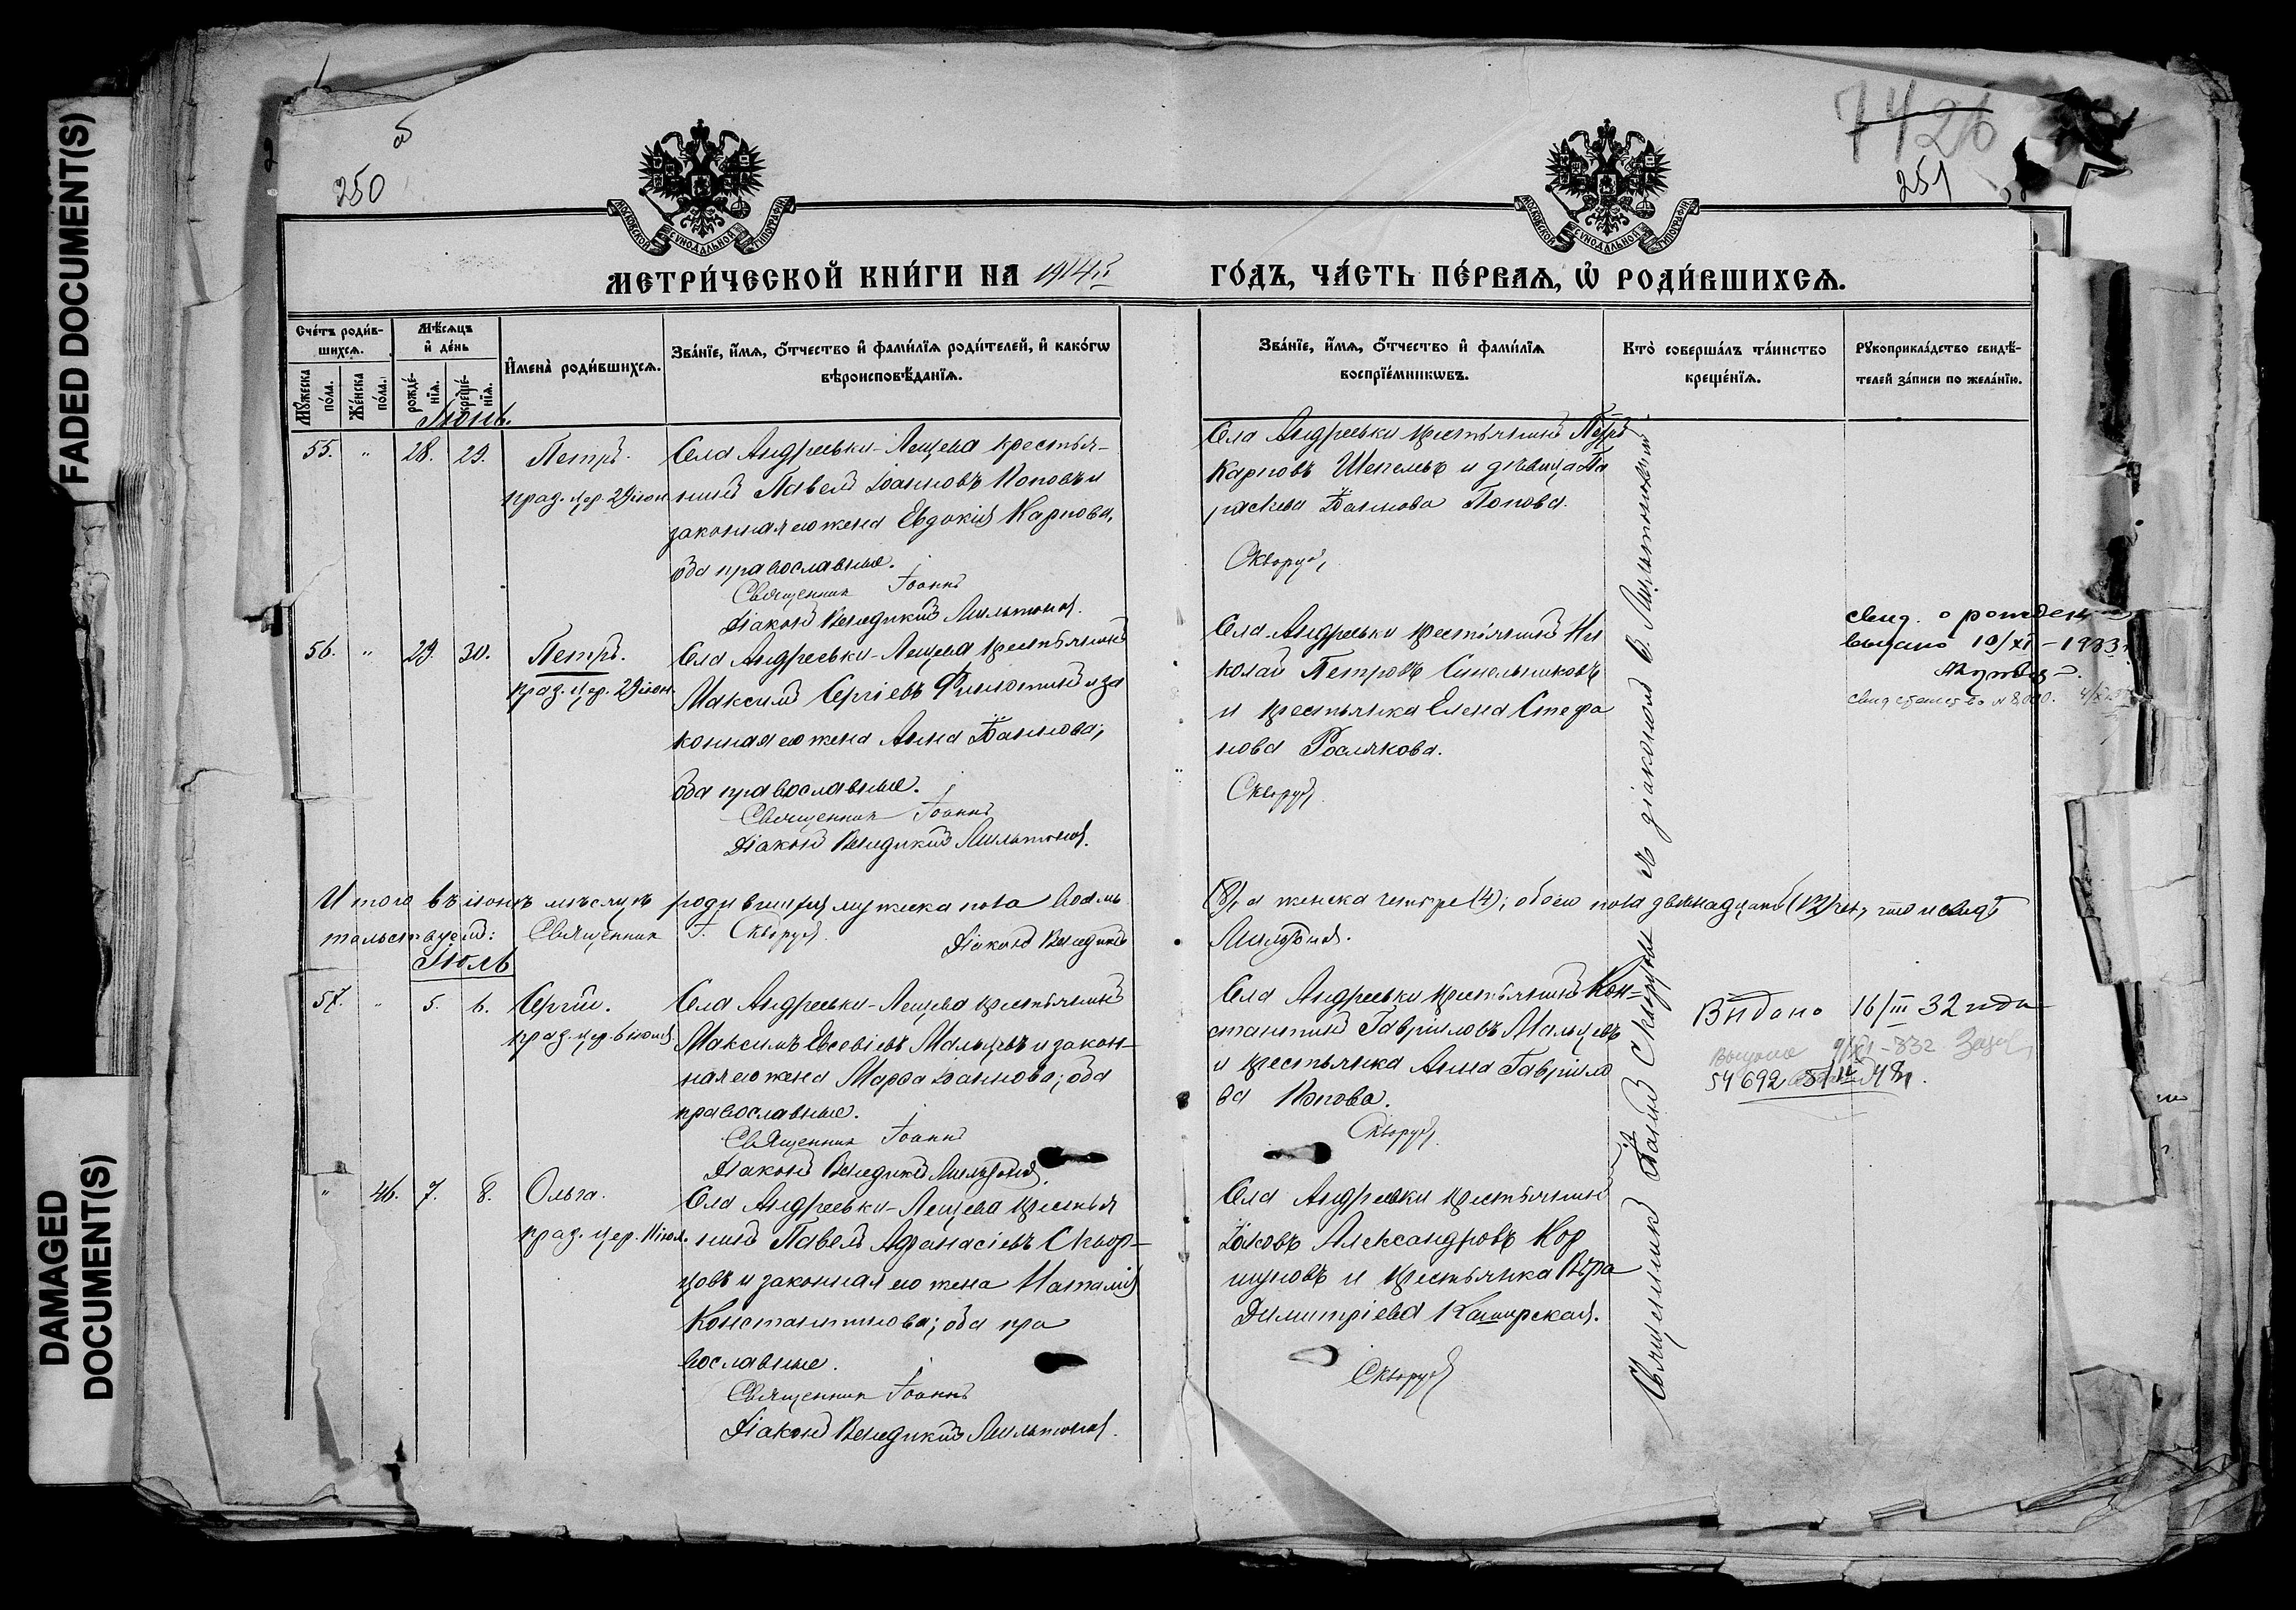 FADED DOCUMENT(S)
DAMAGED
DOCUMENT(S)
250
7426
251
МОСКОВСКОЙ СѴНОДАЛЬНОЙ ТИПОГРАФІИ
МОСКОВСКОЙ СѴНОДАЛЬНОЙ ТИПОГРАФІИ
МЕТРИ́ЧЕСКОЙ КНИ́ГИ НА 1914й
ГО́ДЪ, ЧА́СТЬ ПЕ́РВАѦ, Ѡ҆ РОДИ́ВШИХСѦ.
Сче́тъ роди́в-
шихсѧ.
Мꙋ́жеска по́ла.
Же́нска по́ла.
Мѣ́сѧцъ
и҆ де́нь
рожде́-
нїѧ.
креще́-
нїѧ.
И҆мена̀ роди́вшихсѧ.
Зва́нїе, и҆́мѧ, ѻ҆́тчество и҆ фами́лїѧ роди́телей, и҆ како́гѡ
вѣроисповѣ́данїѧ.
Зва́нїе, и҆́мѧ, ѻ҆́тчество и҆ фами́лїѧ
воспрїе́мникѡвъ.
Кто̀ соверша́лъ та́инство
креще́нїѧ.
Рꙋкоприкла́дство свидѣ́-
телей за́писи по жела́нїю.
Іюнь.
55. " 28. 29. Петръ.
празд. цер. 29 іюн.
Села Андреевки-Лещева крестья-
нинъ Павелъ Іоанновъ Поповъ и
законная его жена Евдокія Карпова,
оба православные.
Священникъ Іоаннъ
Діаконъ Венедиктъ
Села Андреевки крестьянинъ Петръ
Карповъ Шепелевъ и дѣвица Па
раскева Іоаннова Попова.
Скворцовъ
56. " 29. 30. Петръ.
празд. цер. 29 іюн.
Села Андреевки-Лещева крестьянинъ
Максимъ Сергіевъ и за
конная его жена Анна Іоаннова;
оба православные.
Священникъ Іоаннъ
Діаконъ Венедиктъ
Села Андреевки крестьянинъ Ни
колай Петровъ Синельниковъ
и крестьянка Елена Стефа
нова Рослякова.
Скворцовъ
свид. о рожден
выдано 10/XI-1933г
Свидетельство № 8000.
Итого въ іюнѣ мѣсяцѣ родившихся мужеска пола восмь
(8), а женска четыре (4); обоего пола двѣнадцать (12) чел, что и свидѣ
тельствуемъ: Священникъ І. Скворцовъ Діаконъ Венедиктъ
Іюль
57. " 5. 6. Сергій.
празд. цер. 5 іюля.
Села Андреевки-Лещева крестьянинъ
Максимъ Евсевіевъ Мальцевъ и закон-
ная его жена Марѳа Іоаннова; оба
православные.
Священникъ Іоаннъ
Діаконъ Венедиктъ
Села Андреевки крестьянинъ Кон=
стантинъ Гавріиловъ Мальцевъ
и крестьянка Анна Гавріило
ва Попова.
Скворцовъ
Видано 16/III 32 года
54692
" 46. 7. 8. Ольга.
празд. цер. 11 іюл.
Села Андреевки-Лещева крестья
нинъ Павелъ Аѳанасіевъ Сквор-
цовъ и законная его жена Наталія
Константинова; оба пра
вославные.
Священникъ Іоаннъ
Діаконъ Венедиктъ
Села Андреевки крестьянинъ
Іаковъ Александровъ Кор
шуновъ и крестьянка Вѣра
Димитріева Каширская.
Скворцовъ
Священникъ Іоаннъ Скворцовъ съ діакономъ В.